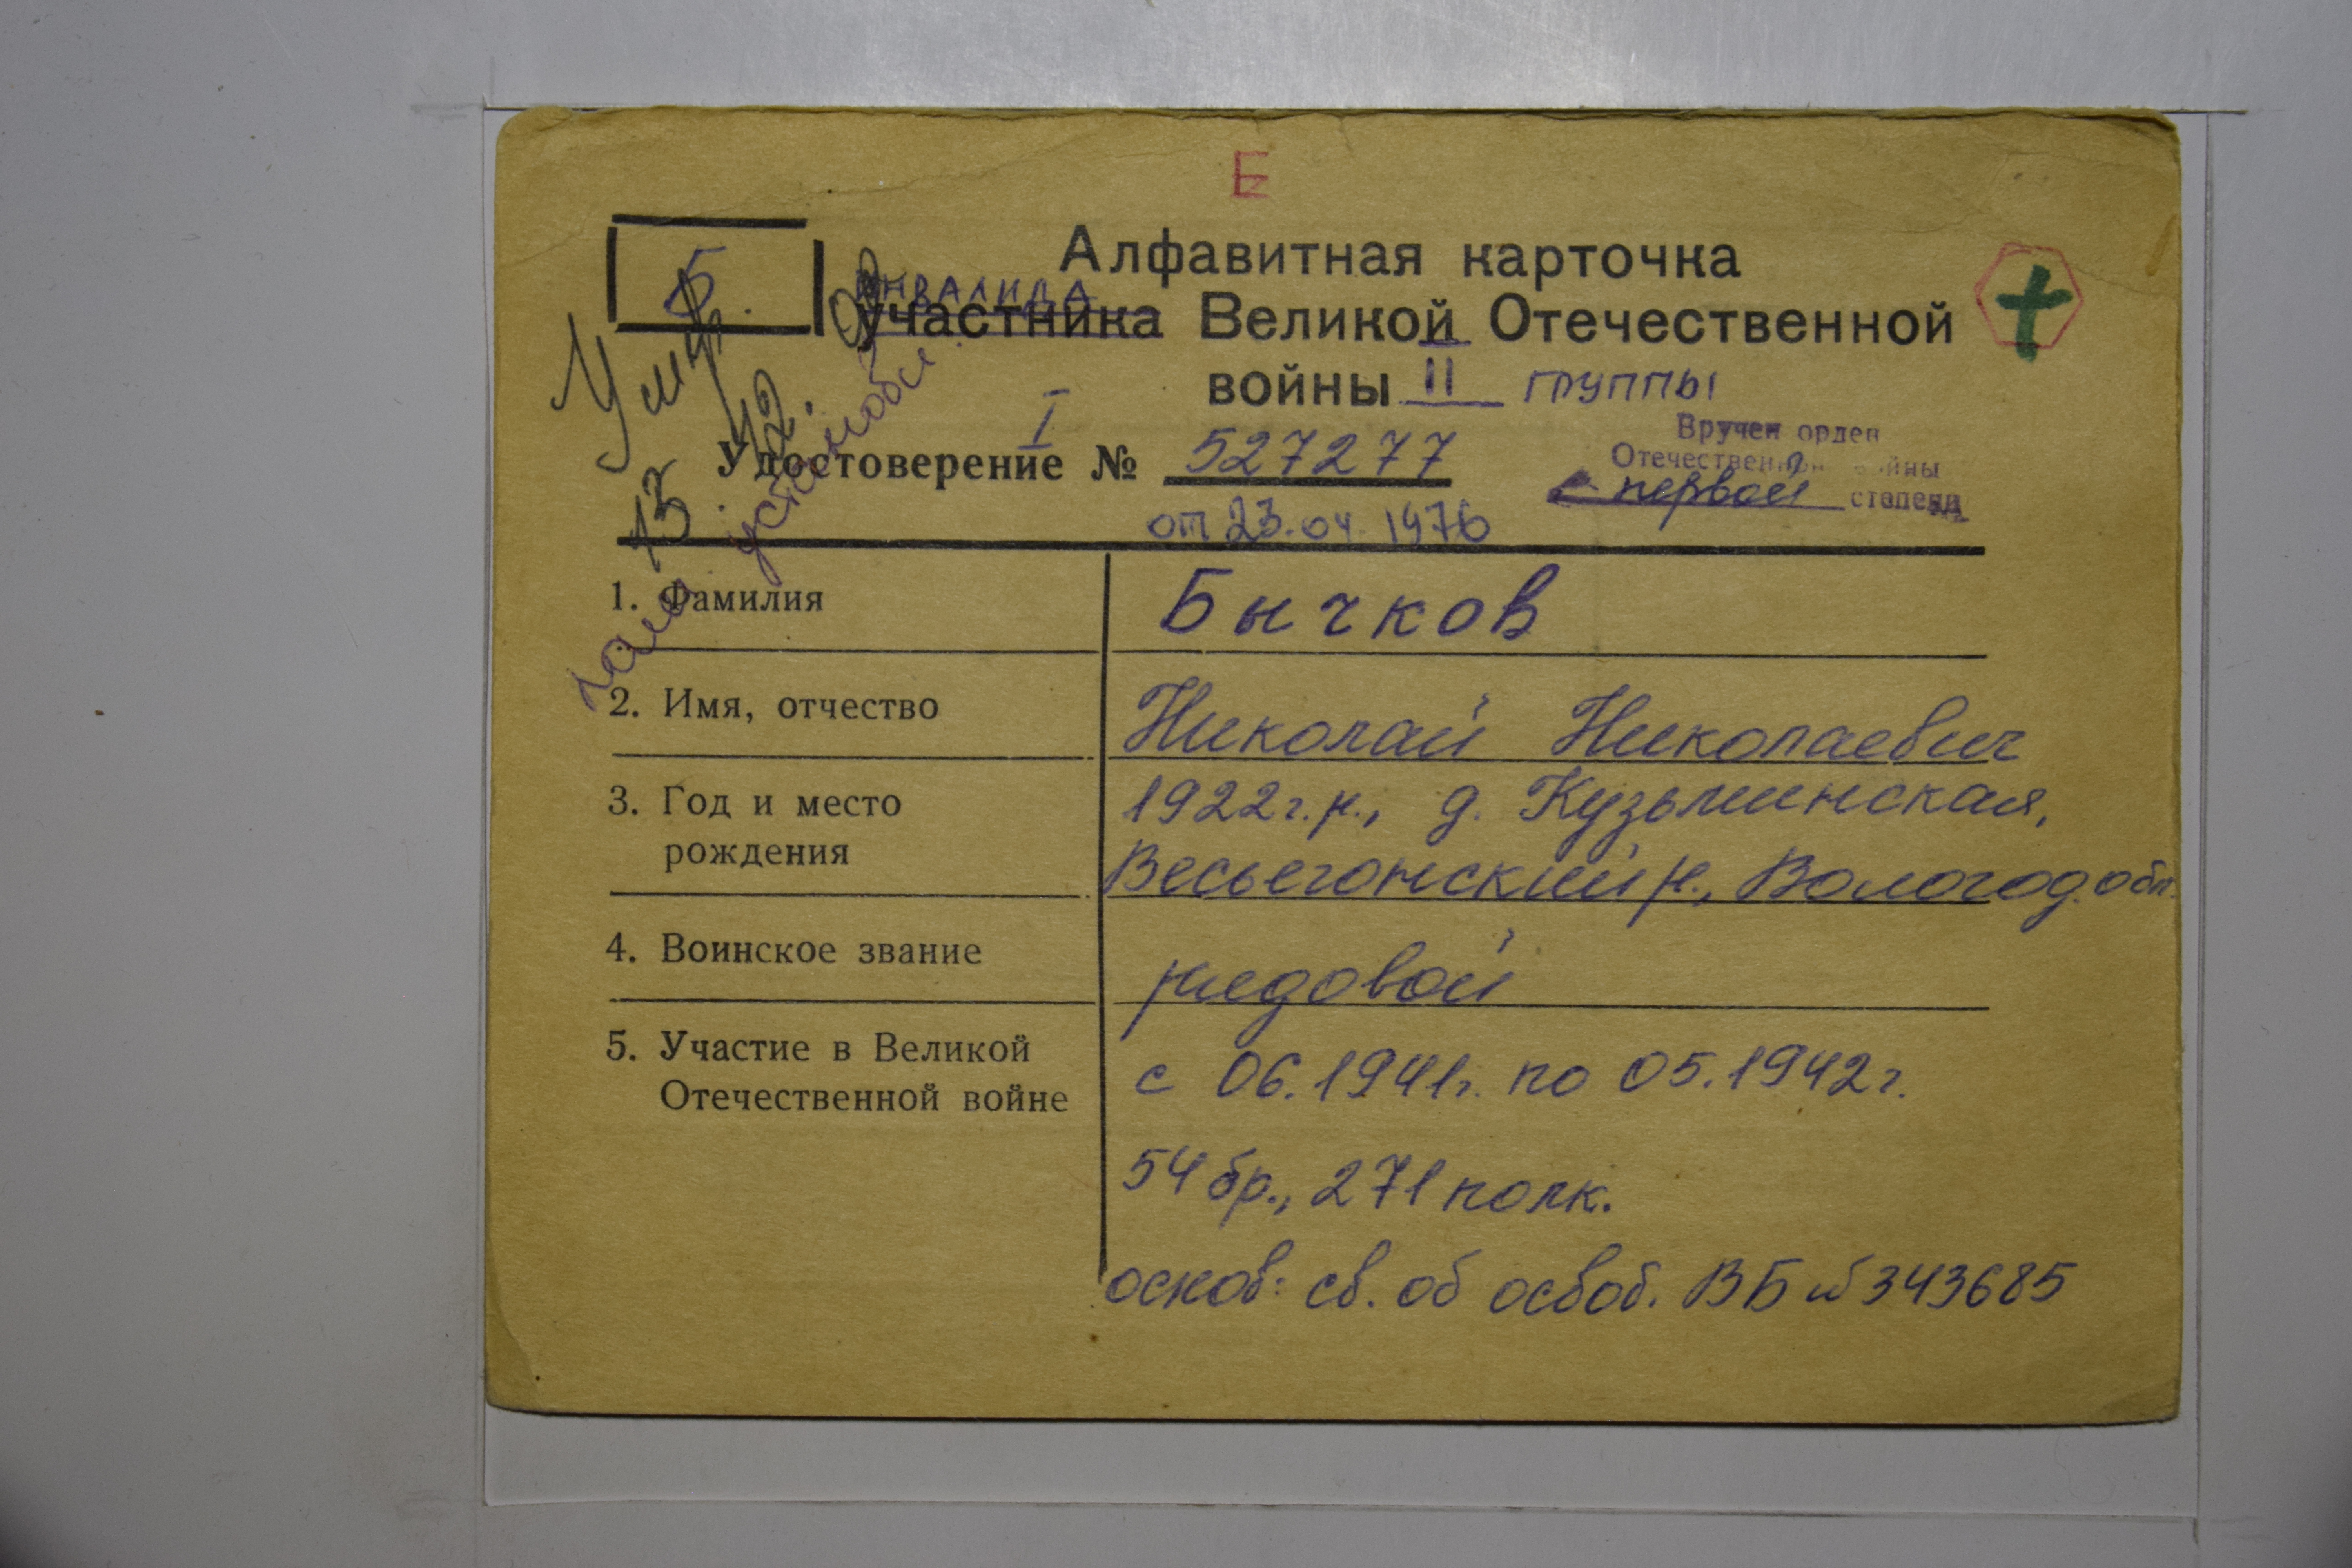 Е
Б.
Алфавитная карточка
инвалида
участника Великой Отечественной
войны II группы
Умер 13.12.
I
Удостоверение № 527277
от 23.04.1976
Вручен орден
Отечественной войны
первой степени
1. Фамилия
Бычков
2. Имя, отчество
Николай Николаевич
3. Год и место
рождения
1922г.р., д. Кузьминская,
Весьегонский р., Вологод. обл.
4. Воинское звание
рядовой
5. Участие в Великой
Отечественной войне
с 06.1941г. по 05.1942г.
54 бр., 271 полк.
основ: св. об освоб. ВБ № 343685